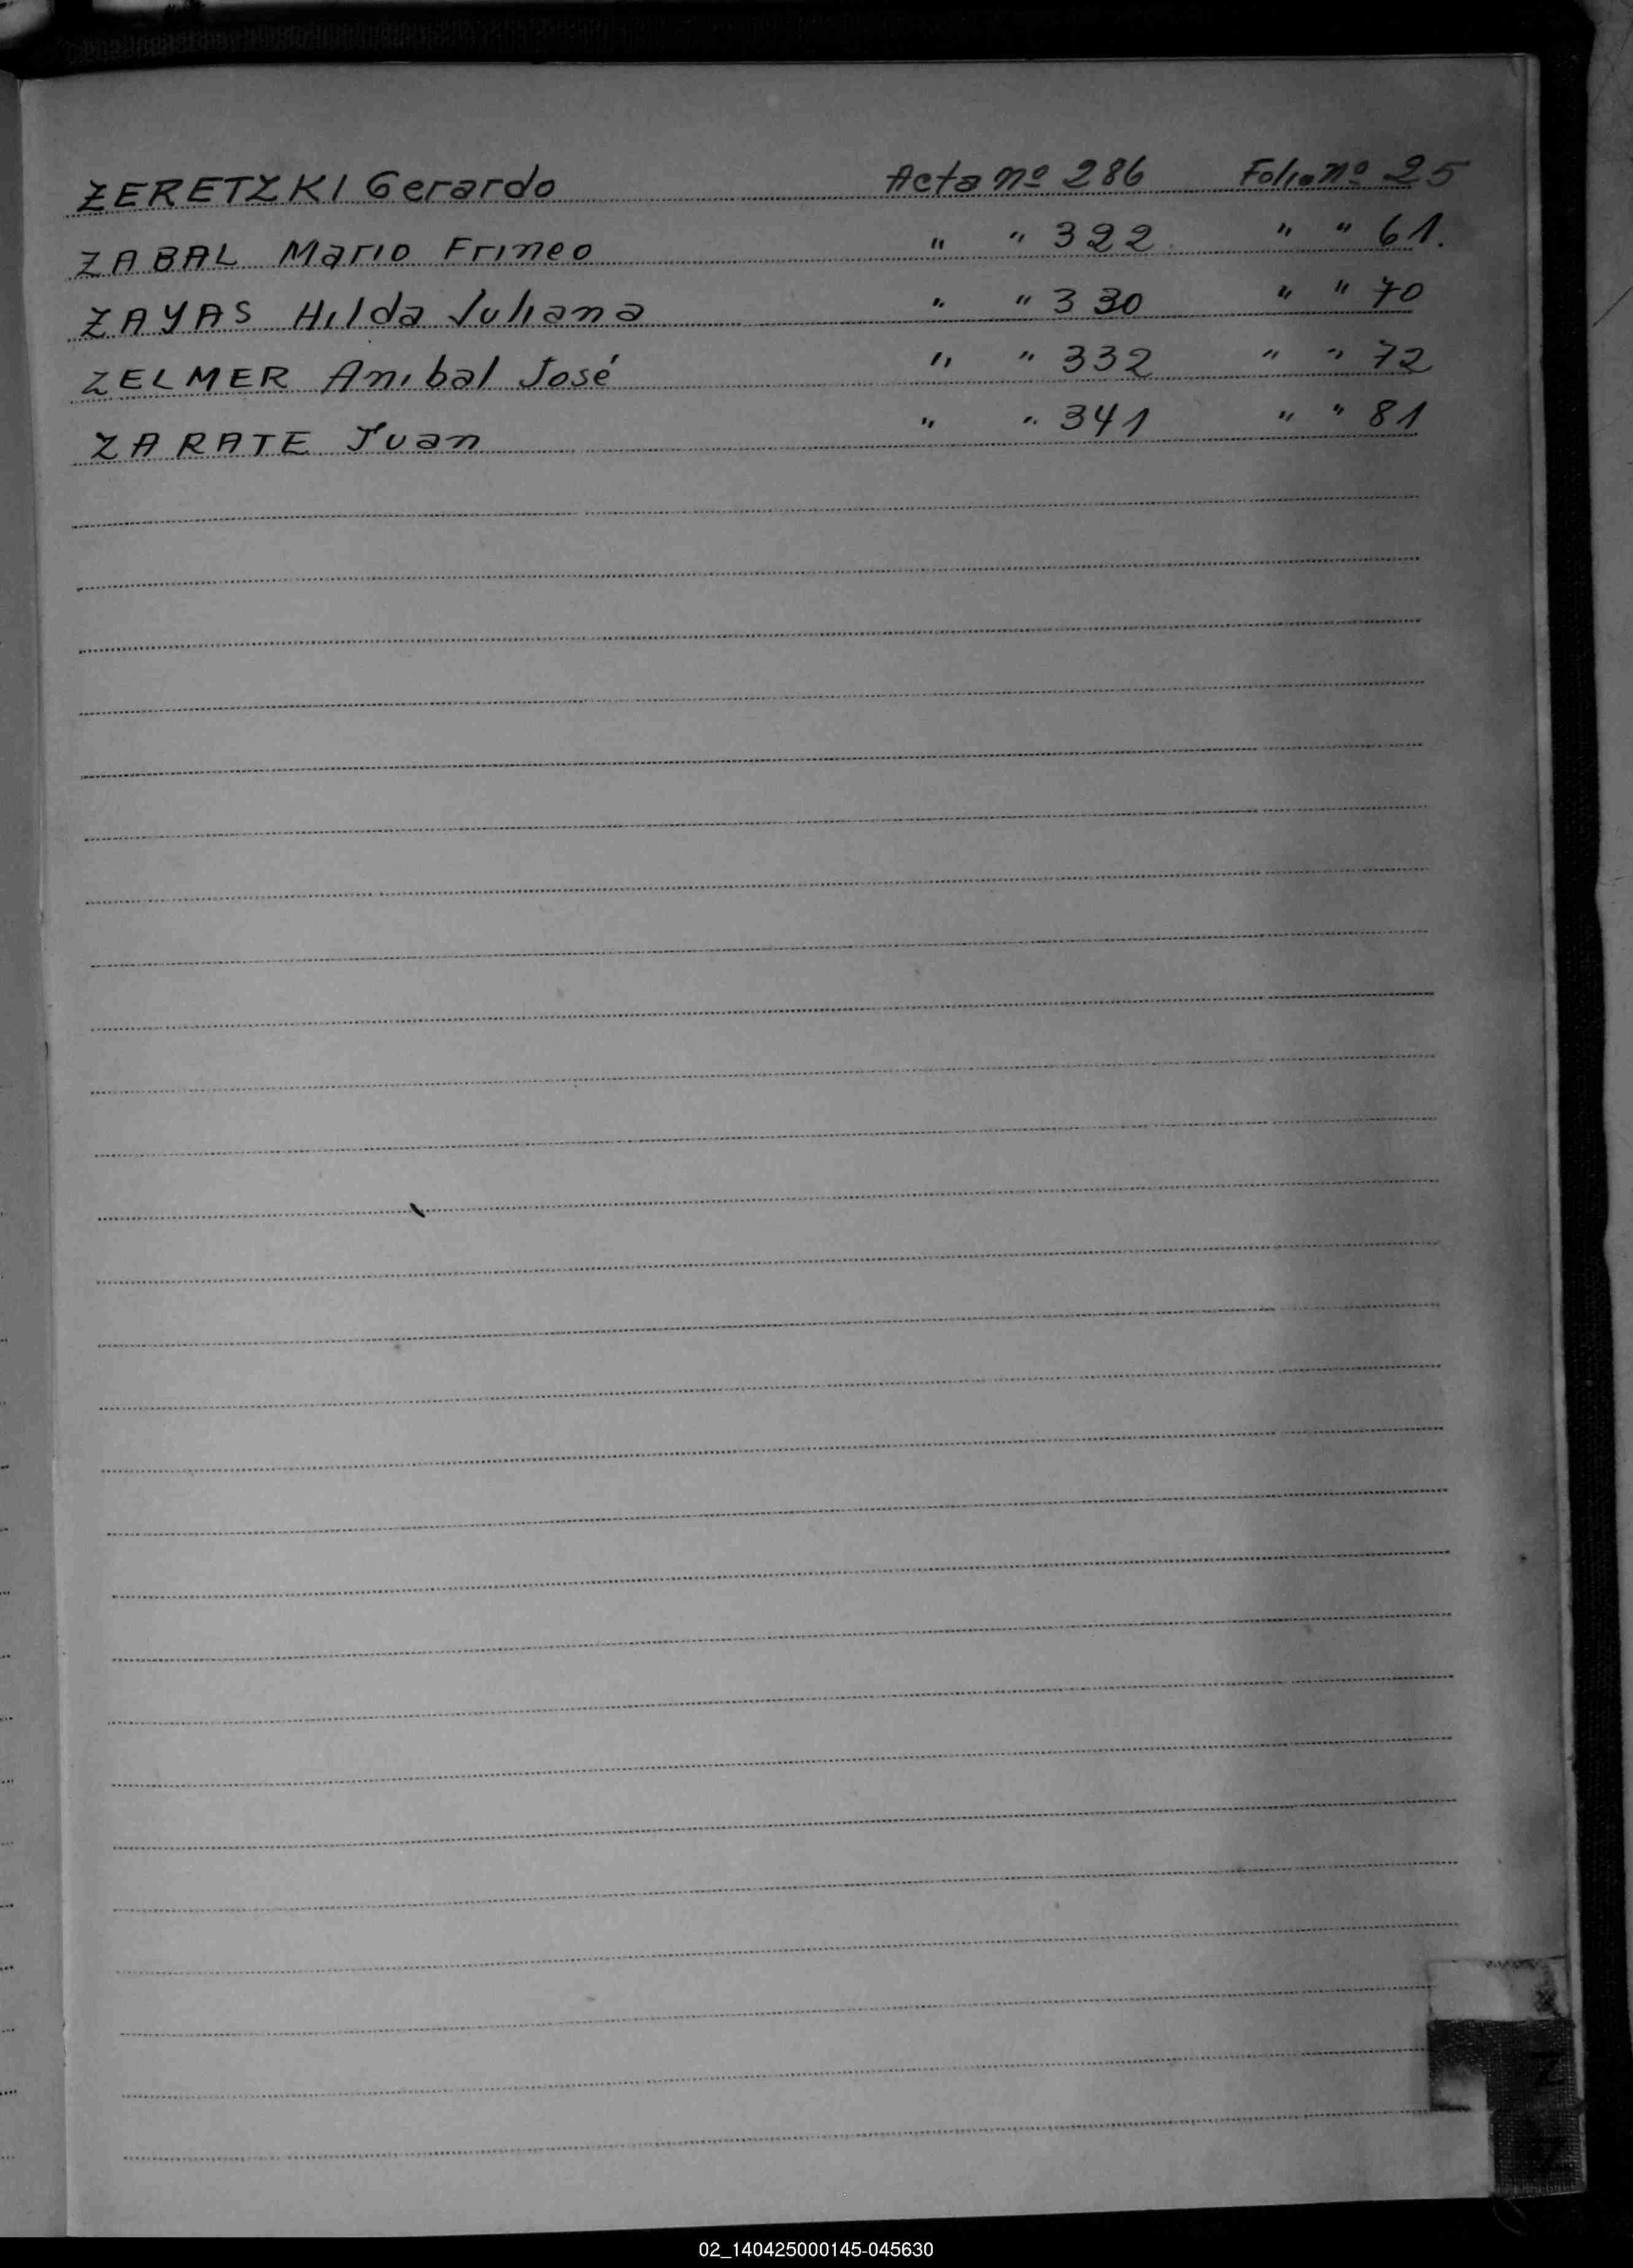 ZERETZKI Gerardo Acta nº 286 Folio nº 25
ZABAL Mario Frineo " " 322 " " 61.
ZAYAS Hilda Juliana " " 330 " " 70
ZELMER Anibal José " " 332 " " 72
ZARATE Juan " " 341 " " 81
Z
02_140425000145-045630